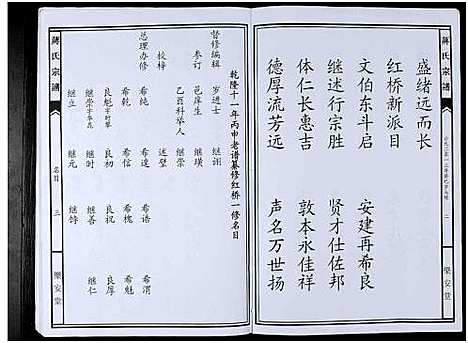 蔣氏宗譜
盛绪远而长
红桥新派目
文伯东斗启 安建再希良
继述行宗胜 贤才仕佐邦
体仁长惠吉 敦本永佳祥
德厚流芳远 声名万世扬
二
樂安堂
蔣氏宗譜
名目
三
樂安堂
乾隆十一年丙申老谱纂修红桥一修名目
督修编辑 岁进士 继诩
参订 邑庠生 继璜
乙酉科举人 继崇
校梓 述壁
总理办修 希纯 希逵 希诰 希渭
希乾 希信 希槐 希魁
良彪 良初 良祝 良厚
继崇 继时 继善 继仁
继立 继元 继诗